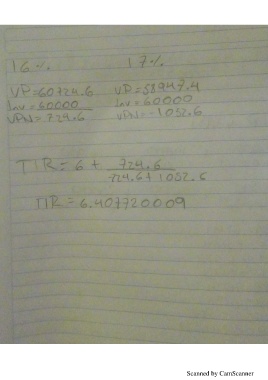 16% 17%
VP=60724.6 VP=58947.4
Inv=60000 Inv=60000
VPN=724.6 VPN=-1052.6
TIR=6+ 724.6
724.6+1052.6
TIR=6.407720009
Scanned by CamScanner